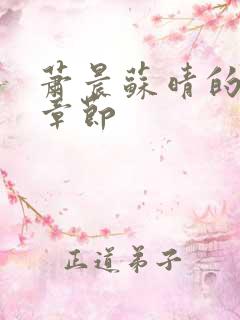 萧晨苏晴的
章節
正道弟子